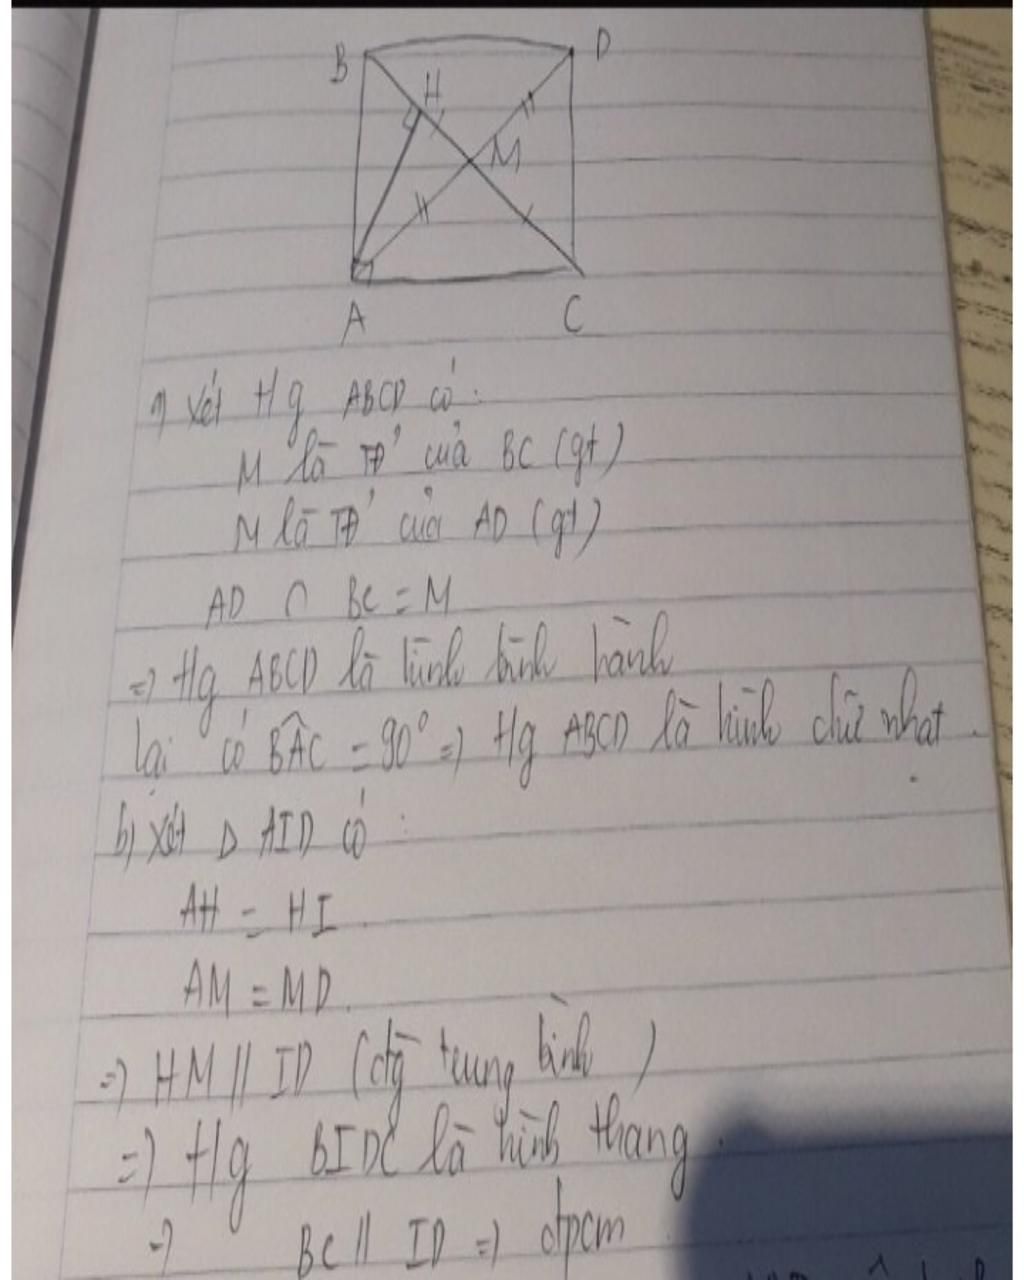 B
D
H
M
A
C
a) Xét Hg ABCD có:
M là TĐ' của BC (gt)
M là TĐ' của AD (gt)
AD ∩ BC = M
=> Hg ABCD là hình bình hành
lại có BÂC = 90° => Hg ABCD là hình chữ nhạt.
b) Xét Δ AID có:
AH = HI
AM = MD.
=> HM // ID (đg trung bình)
=> Hg BIDC là hình thang.
=> BC // ID => đpcm